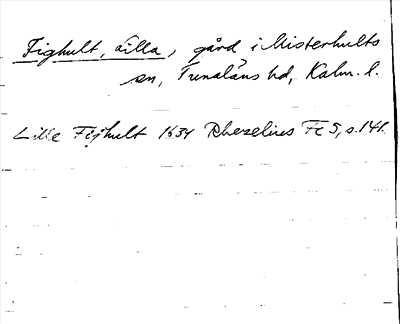 Fighult, Lilla, gård i Misterhults
sn, Tunaläns hd, Kalm. l.
Lille Fighult 1634 Rhezelius Fc 5, s. 141.